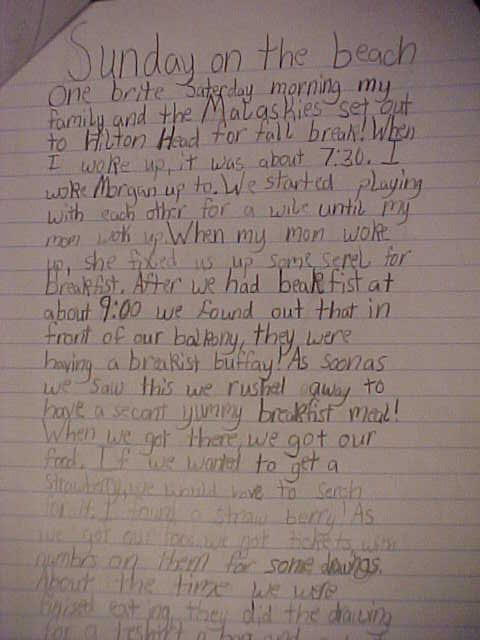 Sunday on the beach
One brite Saterday morning my
family and the Malaskies set out
to Hilton Head for fall break! When
I woke up, it was about 7:30. I
woke Morgan up to. We started playing
with each other for a wile until my
mom wok up. When my mom woke
up, she fixed us up some serel for
breakfist. After we had beakfist at
about 9:00 we found out that in
front of our balkony, they were
having a breakist buffay! As soon as
we saw this we rushed away to
have a secant yummy breakfist meal!
When we got there, we got our
food. If we wanted to get a
strawberry, we would have to serch
for it. I found a straw berry! As
we got our food, we got tickets with
numbrs on them for some dawings.
About the time we were
finised eating, they did the drawing
for a t-shirt, a bag and